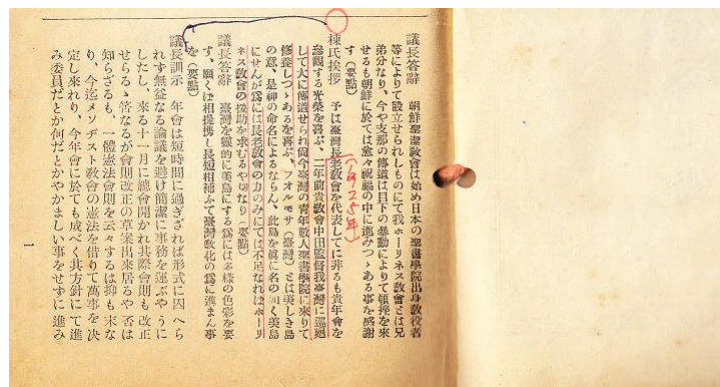 議長答辭　朝鮮聖潔敎會は始め日本の聖書學院出身敎役者
等によりて設立せられしものにて我ホーリネス敎會とは兄
弟分なり、今や支那の傳道は目下の暴動によりて頓挫を來
せるも朝鮮に於ては愈々祝福の中に進みつゝある事を感謝
す（要點）
（1925年）
陳氏挨拶　予は臺灣長老敎會を代表してに非るも貴年會を
參觀する光榮を喜ぶ、二年前貴敎會中田監督我臺灣に巡廻
して大に傳道せられ尙今臺灣の靑年數人聖書學院に來りて
修養しつゝあるを喜ぶ、フオルモサ（臺灣）とは美しき島
の意、是神の命名によるならん、此島を眞に名の如く美島
にせんが爲には長老敎會の力のみにては不足なればホーリ
ネス敎會の援助を求むるや切なり（要點）
議長答辭　臺灣を靈的に美島にする爲には多樣の色彩を要
す、願くは相提携し長短相補ふて臺灣敎化の爲に進まん事
を（要點）
議長訓示　年會は短時間に過ぎざれば形式に因へら
れず無益なる論議を避け簡潔に事務を運ぶやうに
したし、來る十一月に總會開かれ其際會則も改正
せらるゝ筈なるが會則改正の草案出來居るや否は
知らざるも、一體憲法會則を云々するは抑も末な
り、今迄メソヂスト敎會の憲法を借りて萬事を決
定し來れり、今年會に於ても成べく其方針にて進
み委員だとか何だとかやかましい事をせずに進み
一